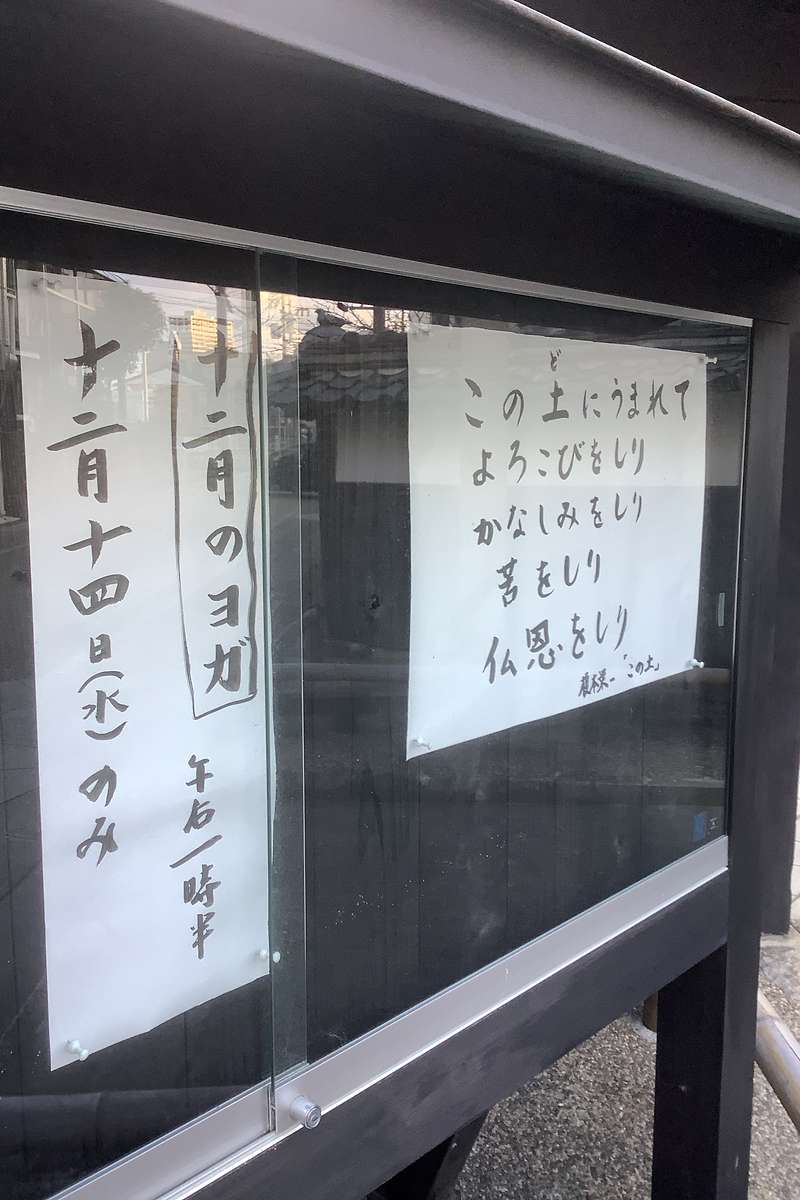 この土にうまれて
ど
よろこびをしり
かなしみをしり
苦をしり
仏恩をしり
榎本栄一「この土」
十二月のヨガ
午后一時半
十二月十四日(水)のみ